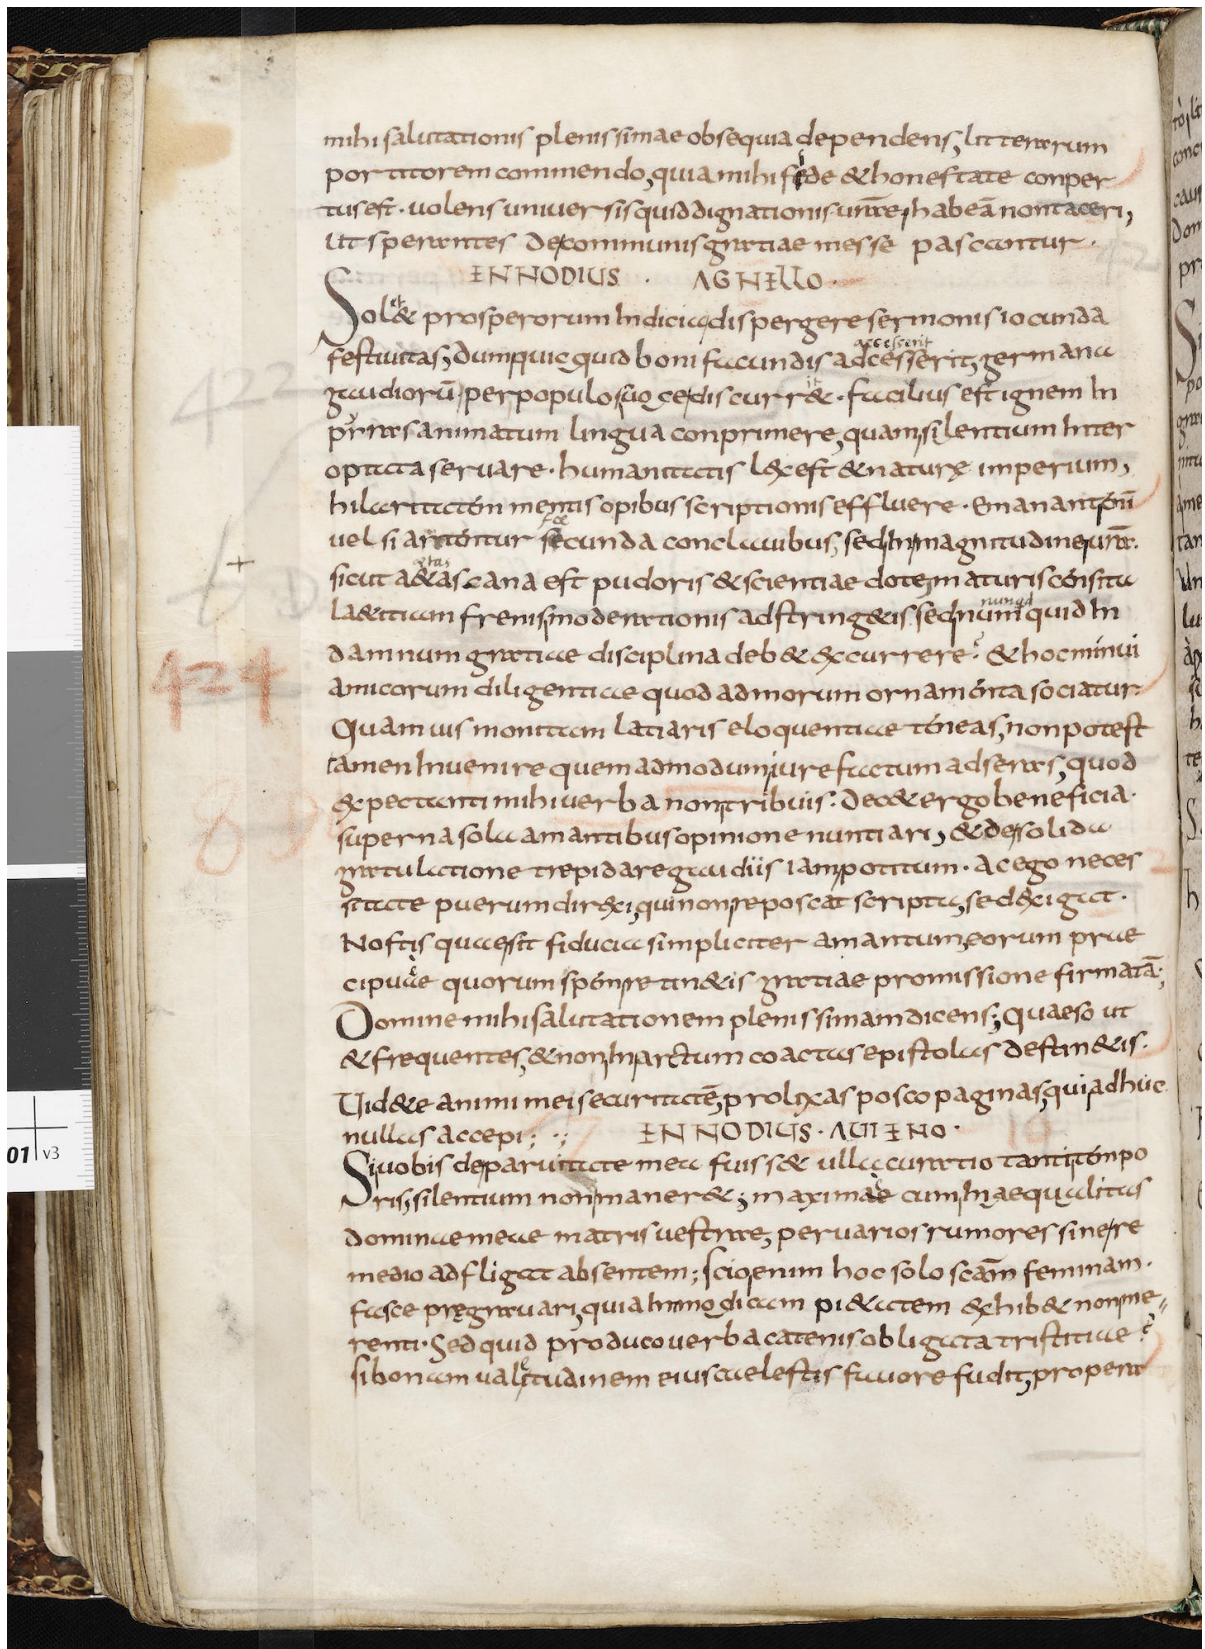 mihi salutationis plenissimae obsequia dependens, litterarum
portitorem commendo, quia mihi fide & honestate conper
tus est. uolens uniuersis quid dignationis urāe, habeā non taceri,
ut sperantes de communis gratiae messe pascantur.
ENNODIUS . AGNELLO.
Sol& prosperorum Indicia dispergere sermonis iocunda
et
festiuitas, dum quicquid boni facundis adcesserit, germana
accesserit
gaudiorū, per populos uoce discurr&. facilius est ignem In
it
prunas animatum lingua conprimere, quam silentium Inter
optata seruare. humanitatis lex est & naturę imperium,
hilaritatem mentis opibus scriptionis effluere. emanantem̄
uel si artentur secunda conclauibus, sed In magnitudine urāe.
sicut a&as cana est pudoris & scientiae dote, maturis consita
etas
la&itiam frenis moderationis adstring&is. sed numquid In
nunqd
damnum gratiae disciplina deb& excurrere? & hoc minui
amicorum diligentiae quod ad morum ornamenta sociatur.
Quamuis montem latiaris eloquentiae teneas, non potest
tamen Inuenire quemadmodum iure factum adseras, quod
expectanti mihi uerba non tribuis. dec& ergo beneficia.
superna sola amantibus opinione nuntiari, & de solida
gratulatione trepidare gaudiis iam potitum. Ac ego neces
sitate puerum direxi, qui non reposcat scripta, sed exigat.
Nostis quae sit fiducia simpliciter amantum, eorum prae
cipuae quorum spem retin&is gratiae promissione firmatā;
Domine mihi salutationem plenissimam dicens; quaeso ut
& frequentes, & non In artum coactas epistolas destin&is.
Uid&e animi mei securitatē, prolixas posco paginas, qui adhuc
nullas accepi; .; ENNODIUS. AUIENO.
Si uobis de paruitate mea fuiss& ulla curatio tanti tenpo
ris, silentium non maner&; maximae cum Inaequalitas
dominae meae matris uestrae, per uarios rumores sine re
medio adfligat absentem; scio enim hoc solo scām feminam.
fasce pręgrauari, quia Immo dicam pi&atem exhib& non me„
renti. Sed quid produco uerba catenis obligata tristitiae?
si bonam ualetudinem eius caelestis fauore fudit, propera
+
422
424
01 v3